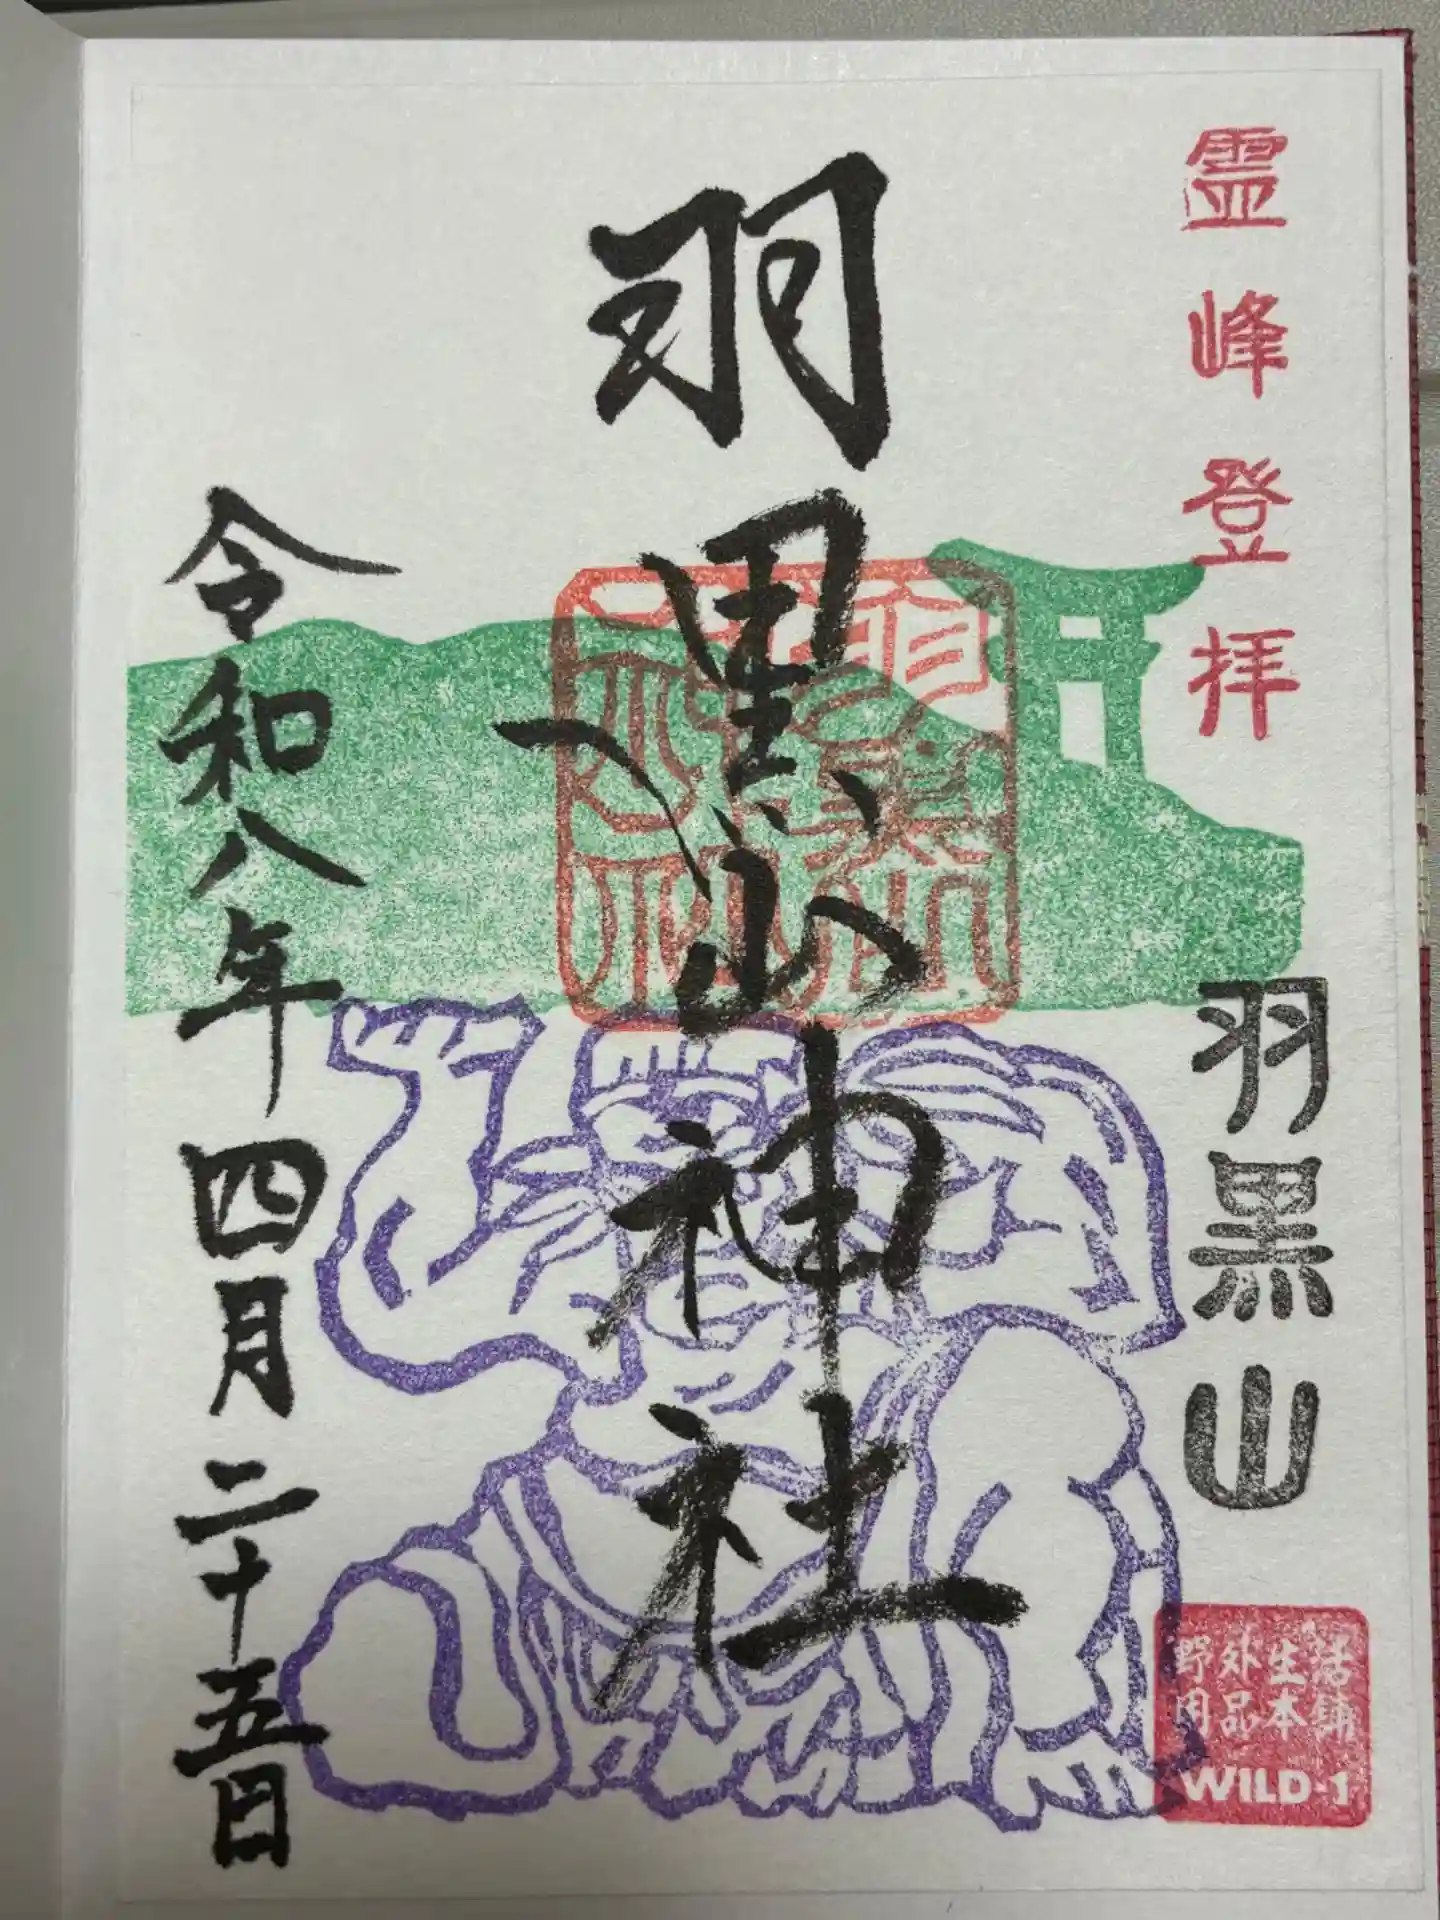 霊峰登拝
羽黒山
野外生活
用品本舗
WILD-1
羽黒山神社
令和八年四月二十五日